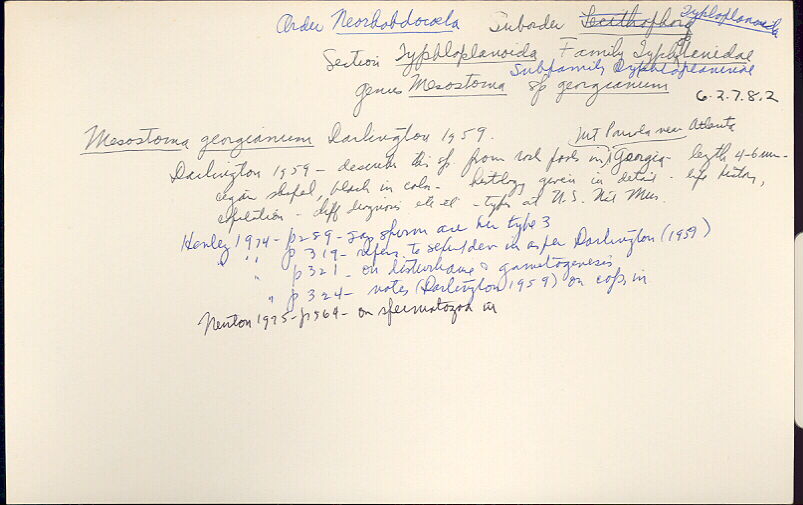 Order Neorhabdocoela Suborder Lecithophora Typhloplanoida
Section Typhloplanoida Family Typhloplanidae
Subfamily Typhloplaninae
genus Mesostoma sp georgianum 6.2.7.8.2
Mesostoma georgianum Darlington 1959. Mt Panola near Atlanta
Darlington 1959 - describes this sp. from rock pools in Georgia - length 4-6 mm -
cigar shaped, black in color - histology given in detail - life history,
copulation - diff diagnosis et al - types at U.S. Nat Mus.
Henley 1974 - p289 - says sperm are her type 3
" " p 319 - refers to in as per Darlington (1959)
" p 321 - on gametogenesis
" p 324 - notes (Darlington 1959) on cops in
Newton 1975 - p564 - on spermatozoa in